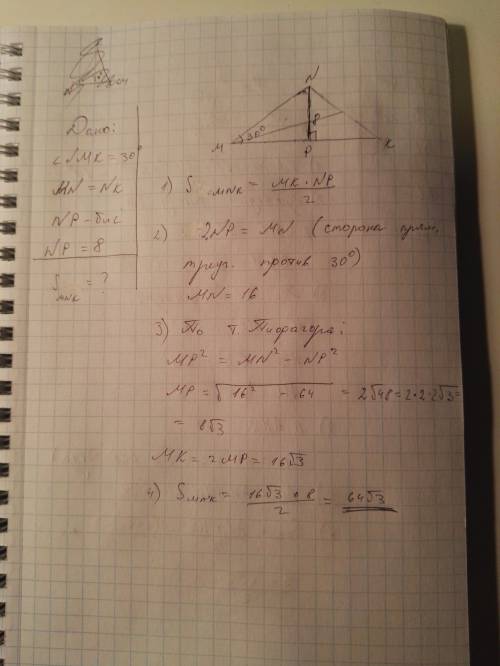 N
8
M 30° P K
Дано:
∠NMK = 30°
MN = NK
NP - бис
NP = 8
S_MNK = ?
1) S_MNK = MK · NP / 2
2) 2NP = MN (сторона прям.
треуг. против 30°)
MN = 16
3) По т. Пифагора:
MP² = MN² - NP²
MP = √16² - 64 = 2√48 = 2·2·2√3 =
= 8√3
MK = 2MP = 16√3
4) S_MNK = 16√3 · 8 / 2 = 64√3